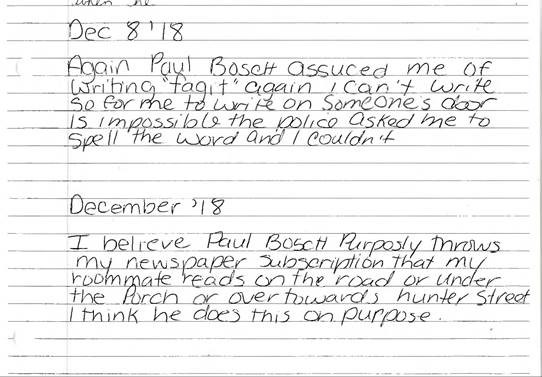 when he
Dec 8 '18
Again Paul Bosch assuced me of
writing "fagit" again I can't write
so for me to write on someone's door
is impossible the police asked me to
spell the word and I couldn't
December '18
I believe Paul Bosch Purposly throws
my newspaper subscription that my
roommate reads on the road or under
the Porch or over towards hunter street
I think he does this on purpose.